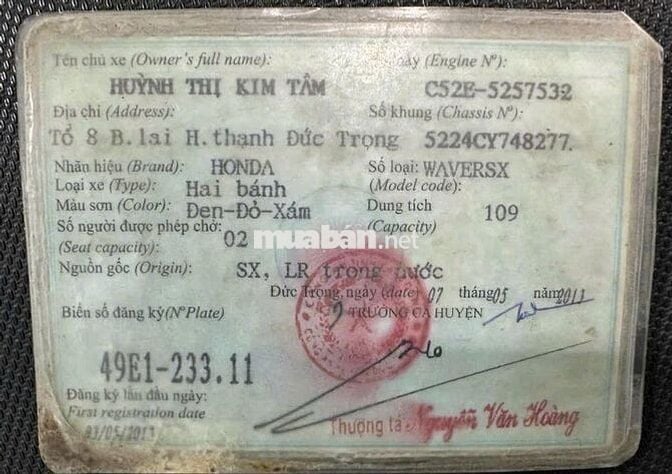 Tên chủ xe (Owner's full name): máy (Engine Nº):
HUỲNH THỊ KIM TÂM C52E-5257532
Địa chỉ (Address): Số khung (Chassis Nº):
Tổ 8 B.lai H.thạnh Đức Trọng 5224CY748277.
Nhãn hiệu (Brand): HONDA Số loại: WAVERSX
Loại xe (Type): Hai bánh (Model code):
Màu sơn (Color): Đen-Đỏ-Xám Dung tích 109
Số người được phép chở: 02 (Capacity)
(Seat capacity):
muaban.net
Nguồn gốc (Origin): SX, LR trong nước
Đức Trọng, ngày (date) 07 tháng 05 năm 2013
Biển số đăng ký (Nº Plate) TRƯỞNG CA HUYỆN
49E1-233.11
Đăng ký lần đầu ngày:
First registration date
03/05/2013
Thượng tá Nguyễn Văn Hoàng